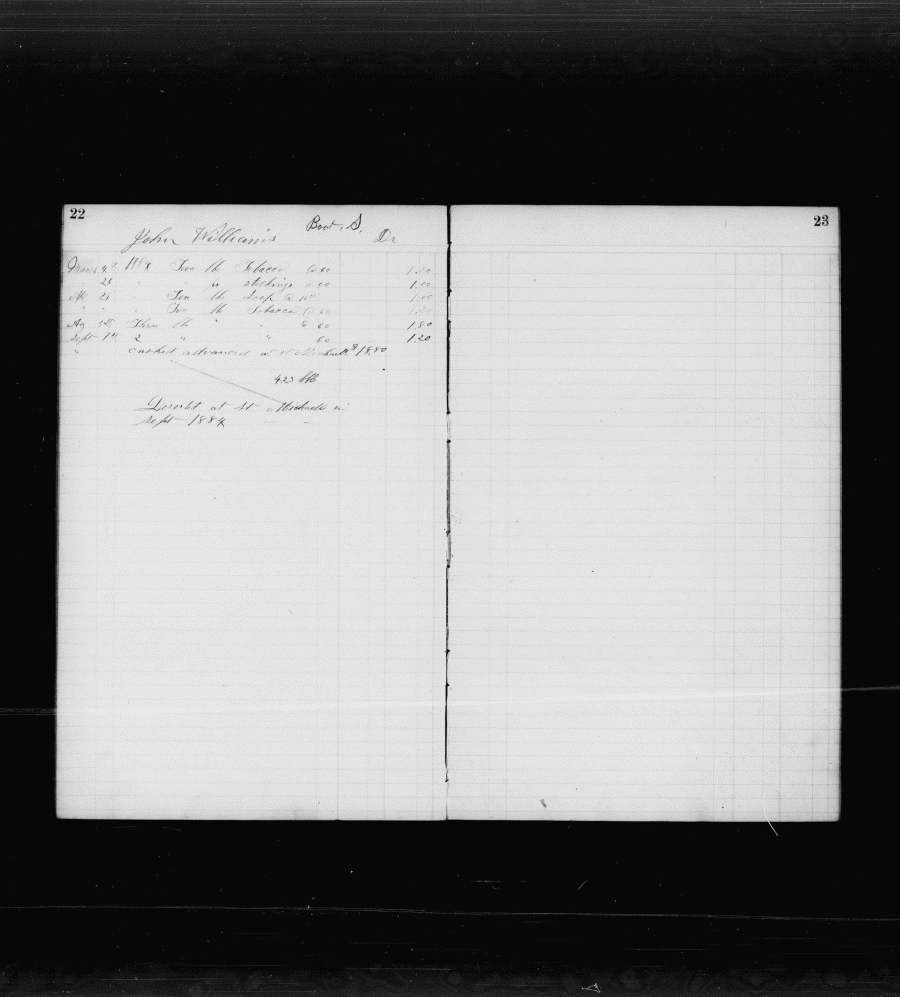 22
23
Boat. S.
John Williams Dr
March 1884 Two lb Tobacco @ 60 1.20
" 28 " " pr stockings 1.00
" 21 " Ten lb Soap @ 10 1.00
" " " Two lb Tobacco @ 60 1.20
Aug Three lb " " @ 60 1.80
Sept 1st 2 " " 60 1.20
" cash advanced at St Michaels $18.80
423
Deserted at St Michaels in
Sept 1884